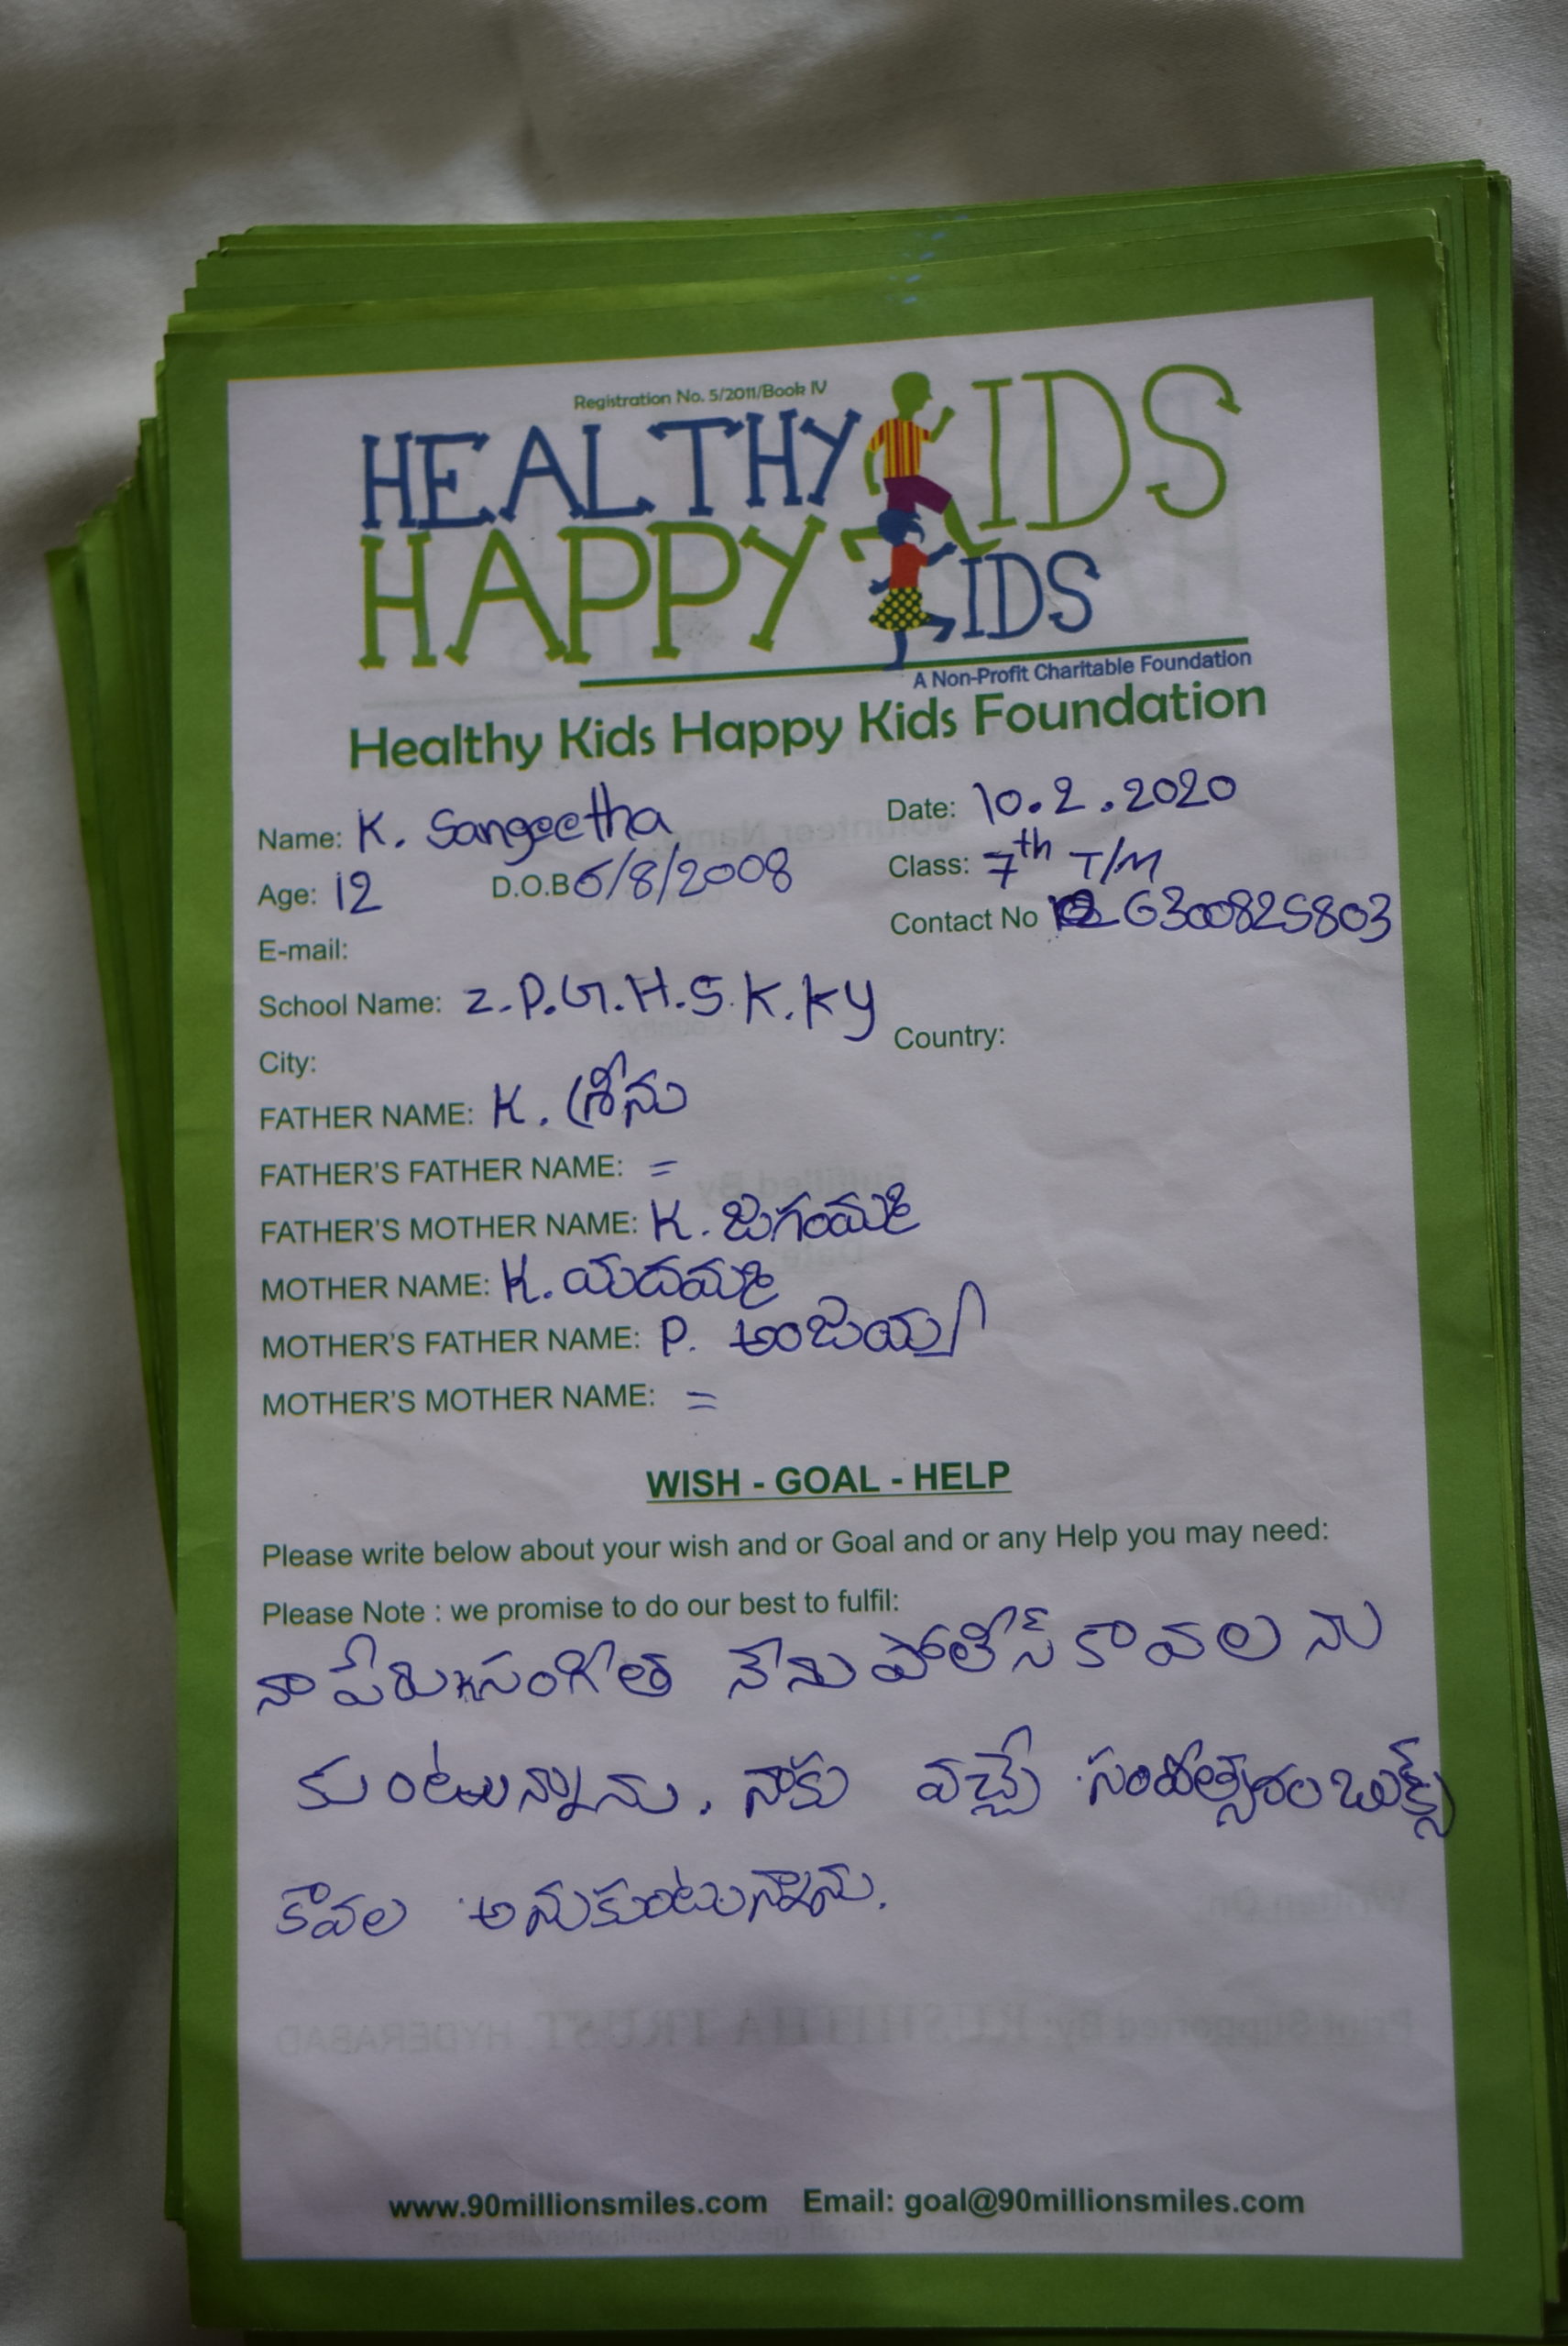 Registration No. 5/2011/Book IV
HEALTHY KIDS
HAPPY KIDS
A Non-Profit Charitable Foundation
Healthy Kids Happy Kids Foundation
Name: K. Sangeetha Date: 10.2.2020
Age: 12 D.O.B 6/8/2008 Class: 7th T/M
Contact No 6300825803
E-mail:
School Name: Z.P.G.H.S.K.KY
City: Country:
FATHER NAME: K. శ్రీను
FATHER'S FATHER NAME: =
FATHER'S MOTHER NAME: K. జగంమ్మ
MOTHER NAME: K. యదమ్మ
MOTHER'S FATHER NAME: P. అంజయ్య
MOTHER'S MOTHER NAME: =
WISH - GOAL - HELP
Please write below about your wish and or Goal and or any Help you may need:
Please Note : we promise to do our best to fulfil:
నా పేరు K సంగీత నేను పోలీస్ కావల ను
కుంటున్నాను. నాకు వచ్చే సంవత్సరం బుక్స్
కావల అనుకుంటున్నాను.
www.90millionsmiles.com Email: goal@90millionsmiles.com